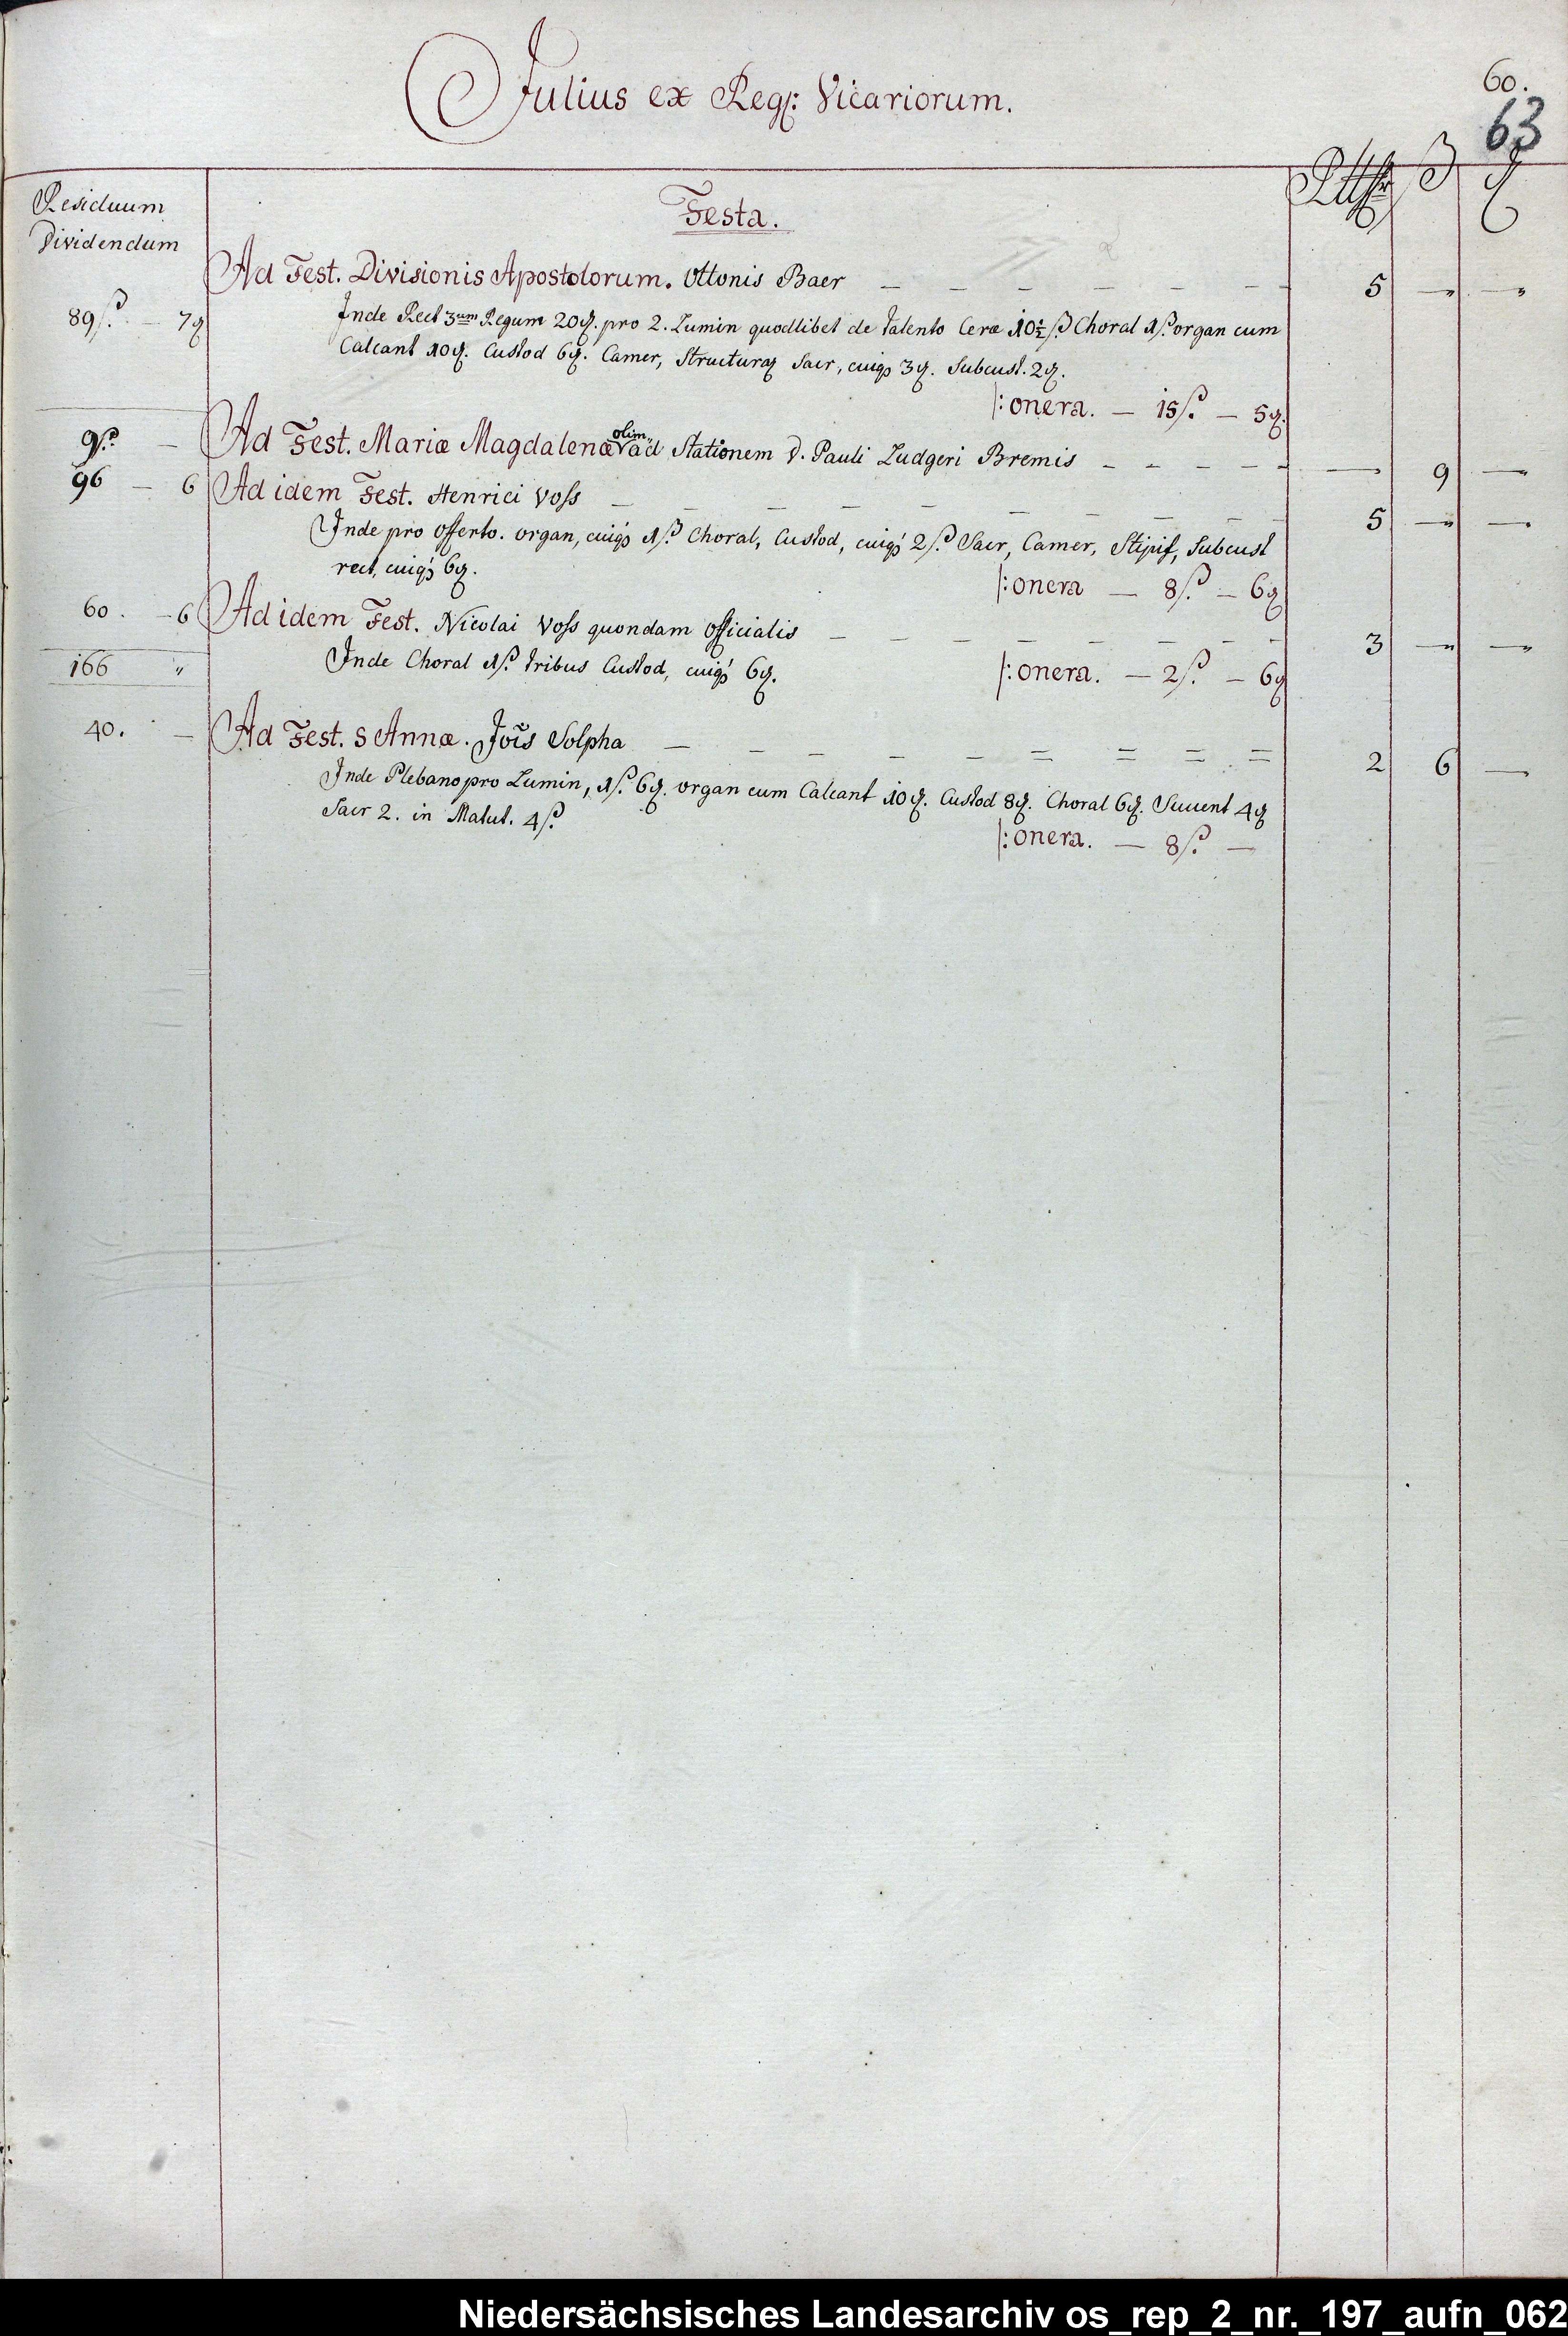 Julius ex Reg: Vicariorum.
60.
63
Residuum
Dividendum
Festa.
Rthlr ß ₰
Ad Fest. Divisionis Apostolorum. Ottonis Baer — — — — — — — 5 — —
89ß. — 7₰
Inde Rect 3um Regum 20₰. pro 2. Lumin quodlibet de Talento Ceræ 10½ß Choral 1ß. organ cum
Calcant 10₰. Custod 6₰. Camer, Structuræ Sacr, cuiqs 3₰. Subcust. 2₰.
|: onera. — 15ß. — 5₰.
9ß. — Ad Fest. Mariæ Magdalenæ olim ad Stationem D. Pauli Ludgeri Bremis — — — — — — 9 —
96 — 6 Ad idem Fest. Henrici Voss — — — — — — — — — 5 — —
Inde pro offerto. organ, cuiqs 1ß. Choral, Custod, cuiqs 2ß. Sacr, Camer, Stipif, Subcust
rect, cuiqs 6₰.
|: onera — 8ß. — 6₰
60. — 6 Ad idem Fest. Nicolai Voss quondam officialis — — — — — — — 3 — —
Inde Choral 1ß. tribus Custod, cuiqs 6₰.
|: onera. — 2ß. — 6₰
166 "
40. — Ad Fest. S Annæ. Jois Solpha — — — — — = = = = 2 6 —
Inde Plebano pro Lumin, 1ß. 6₰. organ cum Calcant 10₰. Custod 8₰. Choral 6₰. Succent 4₰
Sacr 2. in Matut. 4ß.
|: onera. — 8ß. —
Niedersächsisches Landesarchiv os_rep_2_nr._197_aufn_062